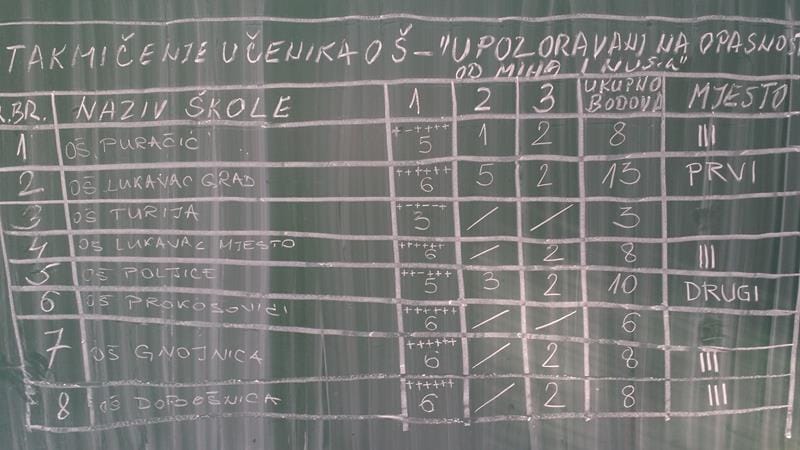 TAKMIČENJE UČENIKA OŠ - "UPOZORAVANJ NA OPASNOS
OD MINA I NUS-a"
R.BR. NAZIV ŠKOLE 1 2 3 UKUPNO BODOVA MJESTO
1 OŠ PURAČIĆ +-++++ 5 1 2 8 III
2 OŠ LUKAVAC GRAD ++++++ 6 5 2 13 PRVI
3 OŠ TURIJA 3 / / 3
4 OŠ LUKAVAC MJESTO ++++++ 6 / 2 8 III
5 OŠ POLJICE ++-+++ 5 3 2 10 DRUGI
6 OŠ PROKOSOVIĆI ++++++ 6 / / 6
7 OŠ GNOJNICA ++++++ 6 / 2 8 III
8 OŠ DOBOŠNICA ++++++ 6 / 2 8 III